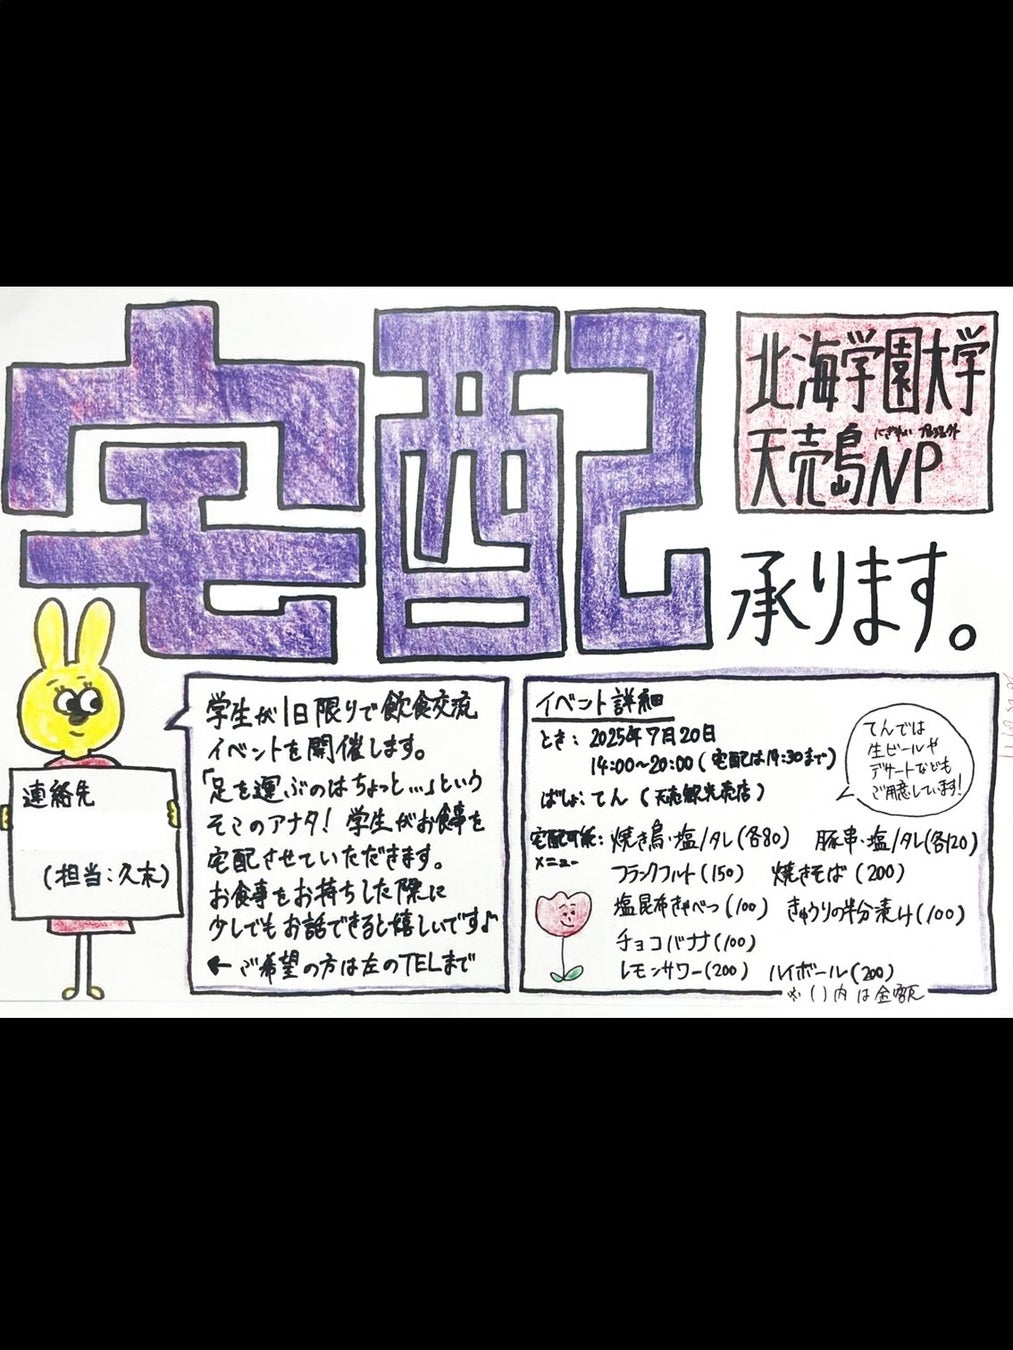 宅配
北海学園大学
天売島NP
にぎわい プロジェクト
承ります。
連絡先
(担当:久末)
学生が1日限りで飲食交流
イベントを開催します。
「足を運ぶのはちょっと…」という
そこのアナタ! 学生がお食事を
宅配させていただきます。
お食事をお持ちした際に
少しでもお話できると嬉しいです♪
← ご希望の方は左のTELまで
イベント詳細
とき: 2025年7月20日
14:00〜20:00(宅配は19:30まで)
ばしょ: てん(天売観光売店)
てんでは
生ビールや
デザートなども
ご用意しています!
宅配可能メニュー: 焼き鳥・塩/タレ(各80) 豚串・塩/タレ(各120)
フランクフルト(150) 焼きそば(200)
塩昆布きゃべつ(100) きゅうりの半分漬け(100)
チョコバナナ(100)
レモンサワー(200) ハイボール(200)
※( )内は金額